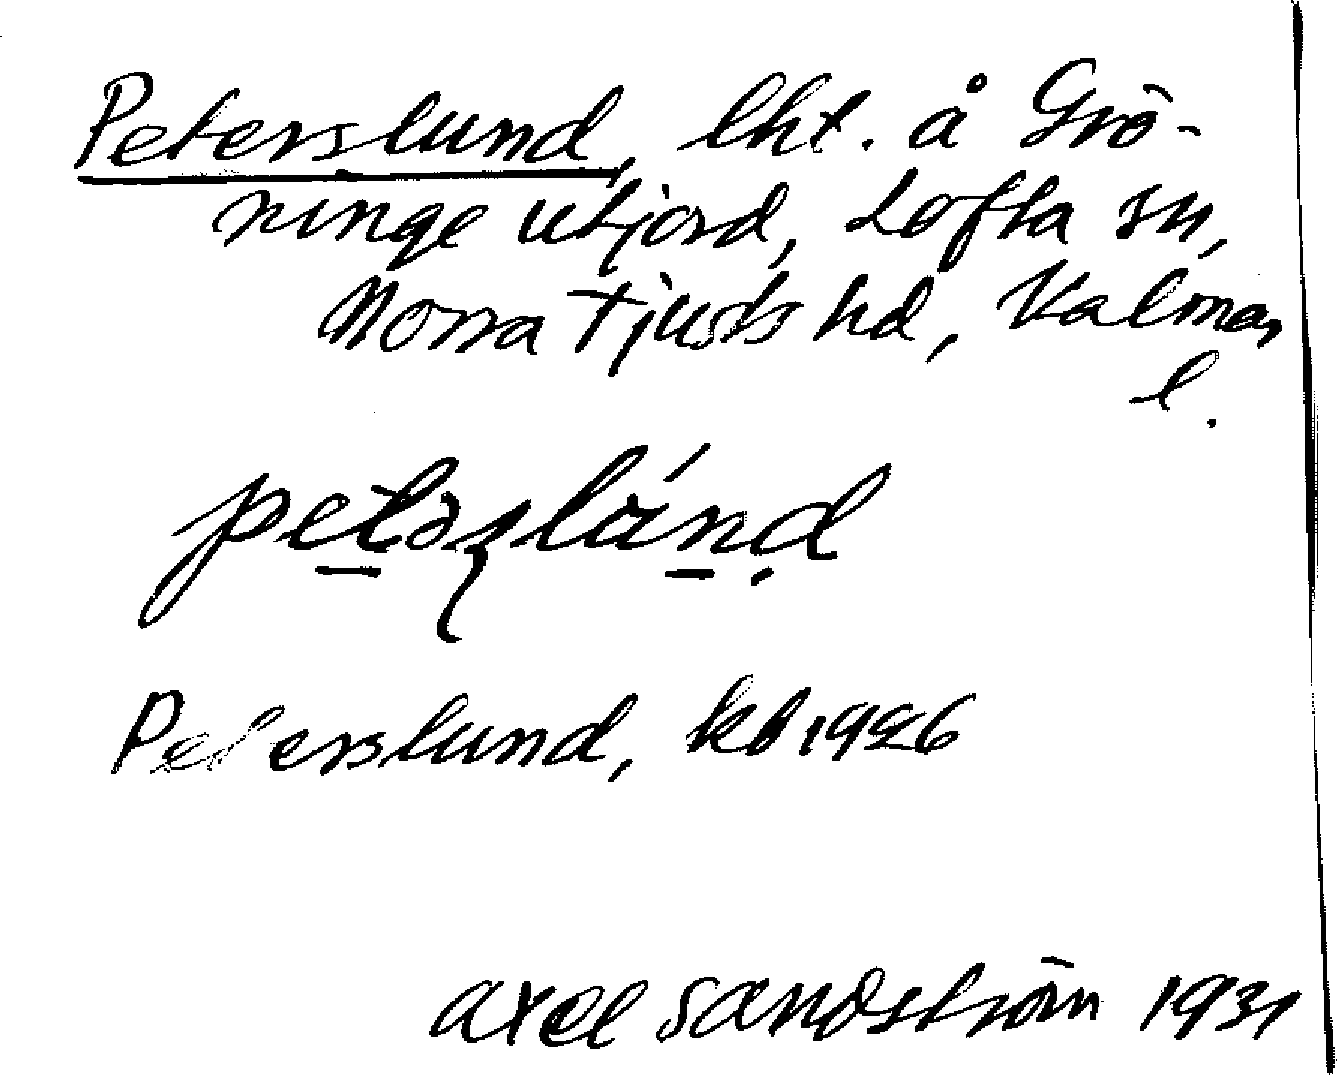 Peterslund, lht. å Grö-
ninge utjord, Lofta sn,
Norra Tjusts hd, Kalmar
l.
Peterslund, kb 1926
Axel Sandström 1931